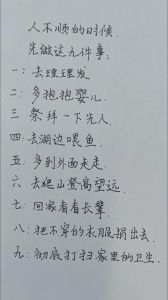 人不顺的时候,
先做这九件事:
一:去理理发
二:多抱抱婴儿
三 祭拜一下先人
四:去湖边喂鱼
五:多到外面走走
六 去爬山登高望远
七:回家看看长辈
八:把不穿的衣服捐出去.
九:彻底打扫家里的卫生